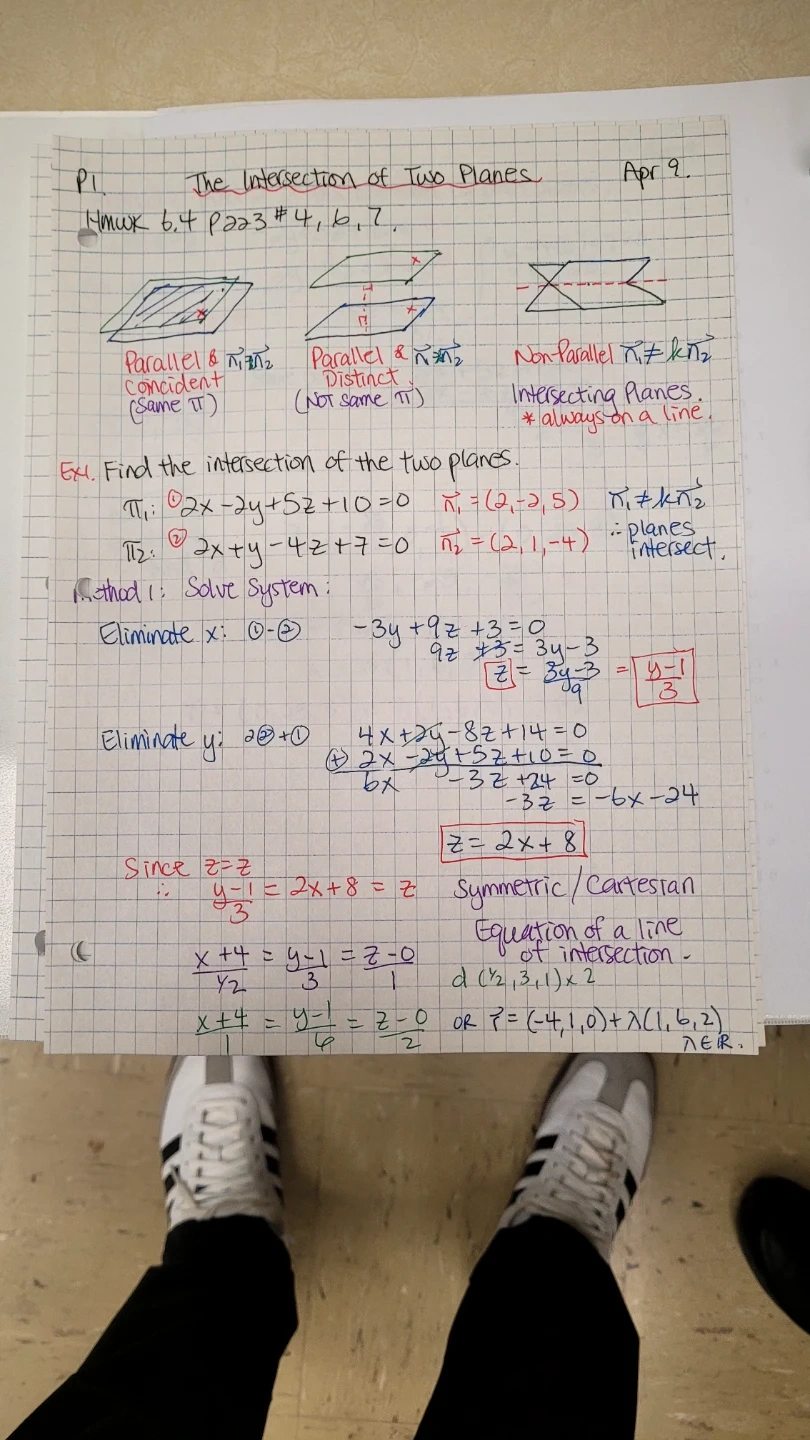 P1. The Intersection of Two Planes Apr 9.
Hmwk 6.4 P223 # 4, 6, 7.
Parallel & n⃗₁=n⃗₂
Coincident
(Same π)
Parallel & n⃗₁=n⃗₂
Distinct.
(Not same π)
Non-Parallel n⃗₁≠kn⃗₂
Intersecting Planes.
* always on a line.
Ex1. Find the intersection of the two planes.
π₁: ① 2x-2y+5z+10=0 n⃗₁=(2,-2,5) n⃗₁≠kn⃗₂
π₂: ② 2x+y-4z+7=0 n⃗₂=(2,1,-4) ∴ planes intersect.
Method 1: Solve System:
Eliminate x: ①-② -3y+9z+3=0
9z +3 = 3y-3
z = 3y-3/9 = y-1/3
Eliminate y: 2②+① 4x+2y-8z+14=0
(+) 2x-2y+5z+10=0
6x -3z+24=0
-3z = -6x-24
z = 2x+8
Since z=z
∴ y-1/3 = 2x+8 = z Symmetric/Cartesian
Equation of a line
of intersection -
x+4/½ = y-1/3 = z-0/1 d (½,3,1)x2
x+4/1 = y-1/6 = z-0/2 OR r⃗=(-4,1,0)+λ(1,6,2)
λ∈ℝ.